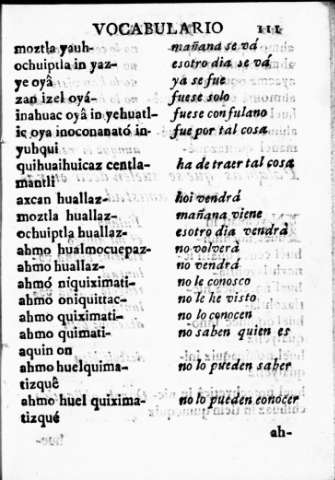 VOCABULARIO 111
moztla yauh- mañana se vá
ochuiptla in yaz- esotro dia se vá
ye oyâ ya se fue
zan izel oyá- fuese solo
inahuac oyâ in yehuatl- fuese con fulano
ic oya inoconanató in- fue por tal cosa
yuhqui
quihuaihuicaz centla- ha de traer tal cosa
mantli
axcan huallaz- hoi vendrá
moztla huallaz- mañana viene
ochuiptla huallaz- esotro dia vendrà
ahmo hualmocuepaz- no volverà
ahmo huallaz- no vendrá
ahmó niquiximati- no le conosco
ahmo oniquittac- no le he visto
ahmo quiximati- no lo conocen
ahmo quimati- no saben quien es
aquin on
ahmo huelquima- no lo pueden saber
tizquê
ahmo huel quixima- no lo pueden conocer
tizqué
ah-